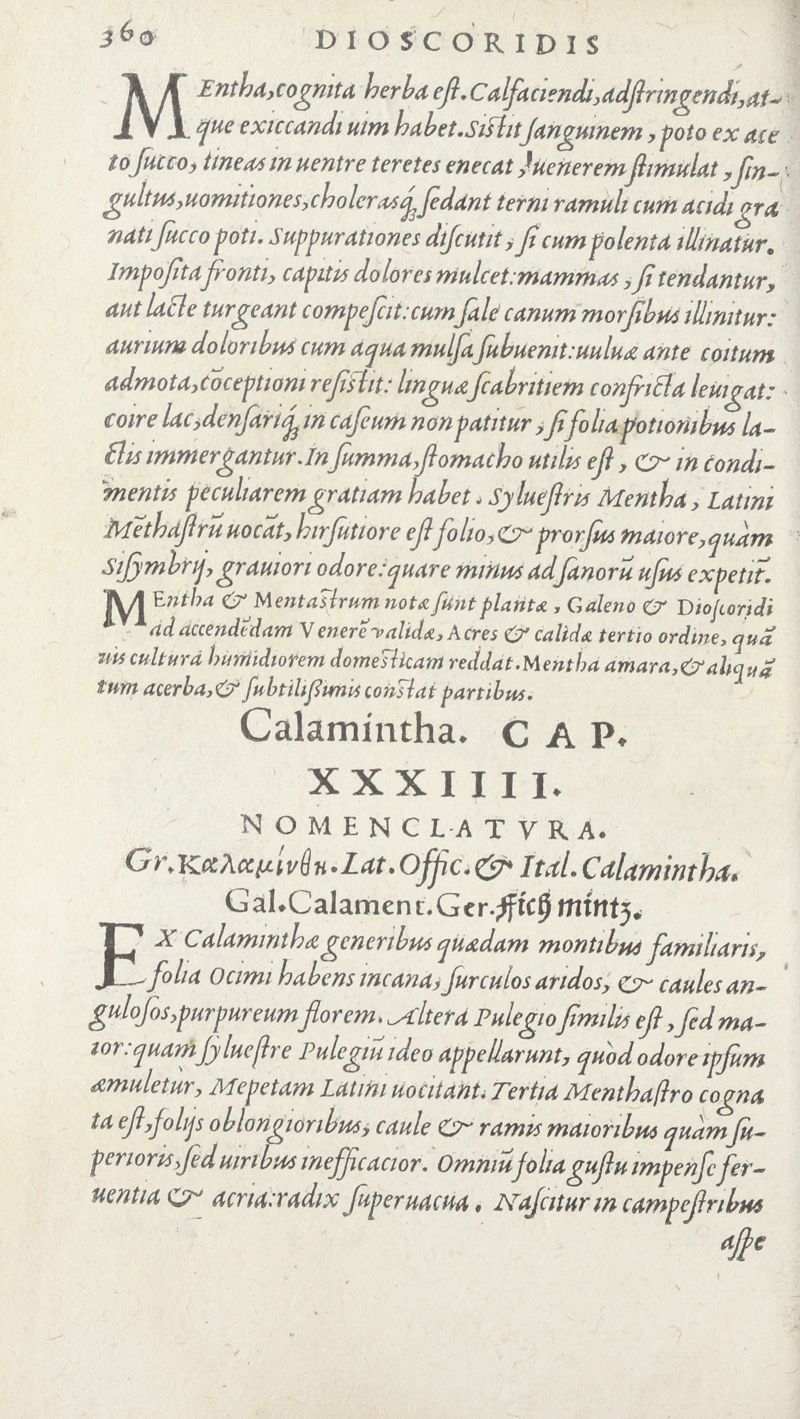 360 DIOSCORIDIS
MEntha,cognita herba eſt.Calfaciendi,adſtringendi,at-
que exiccandi uim habet.Siſtit ſanguinem, poto ex ace
to ſucco, tineas in uentre teretes enecat, uenerem ſtimulat, ſin-
gultus,uomitiones,cholerasq́ꝫ ſedant terni ramuli cum acidi gra
nati ſucco poti. Suppurationes diſcutit, ſi cum polenta illinatur.
Impoſita fronti, capitis dolores mulcet:mammas, ſi tendantur,
aut lacte turgeant compeſcit:cum ſale canum morſibus illinitur:
aurium doloribus cum aqua mulſa ſubuenit:uuluæ ante coitum
admota,cōceptioni reſiſtit: linguæ ſcabritiem confricta leuigat:
coire lac,denſariq́ꝫ in caſeum non patitur, ſi folia potionibus la-
ctis immergantur.In ſumma,ſtomacho utilis eſt, & in condi-
mentis peculiarem gratiam habet. Sylueſtris Mentha, Latini
Mēthaſtrū uocāt, hirſutiore eſt folio, & prorſus maiore,quàm
Siſymbrij, grauiori odore:quare minus ad ſanorū uſus expetit̄.
MEntha & Mentaſtrum notæ ſunt plantæ, Galeno & Dioſcoridi
ad accendēdam Venerē validæ, Acres & calidæ tertio ordine, quā
uis cultura humidiorem domeſticam reddat.Mentha amara, & aliquā
tum acerba, & ſubtiliſſimis conſtat partibus.
Calamintha. CAP.
XXXIIII.
NOMENCLATVRA.
Gr.Καλαμίνθη.Lat.Offic.& Ital.Calamintha.
Gal.Calament.Ger.ﬀicꝫ mintz.
EX Calaminthæ generibus quædam montibus familiaris,
folia Ocimi habens incana, ſurculos aridos, & caules an-
guloſos,purpureum florem. Altera Pulegio ſimilis eſt, ſed ma-
ior:quam ſylueſtre Pulegiū ideo appellarunt, quòd odore ipſum
æmuletur, Mepetam Latini uocitant. Tertia Menthaſtro cogna
ta eſt,folijs oblongioribus, caule & ramis maioribus quàm ſu-
perioris,ſed uiribus inefficacior. Omniū folia guſtu impenſe fer-
uentia & acria:radix ſuperuacua. Naſcitur in campeſtribus
aſpe